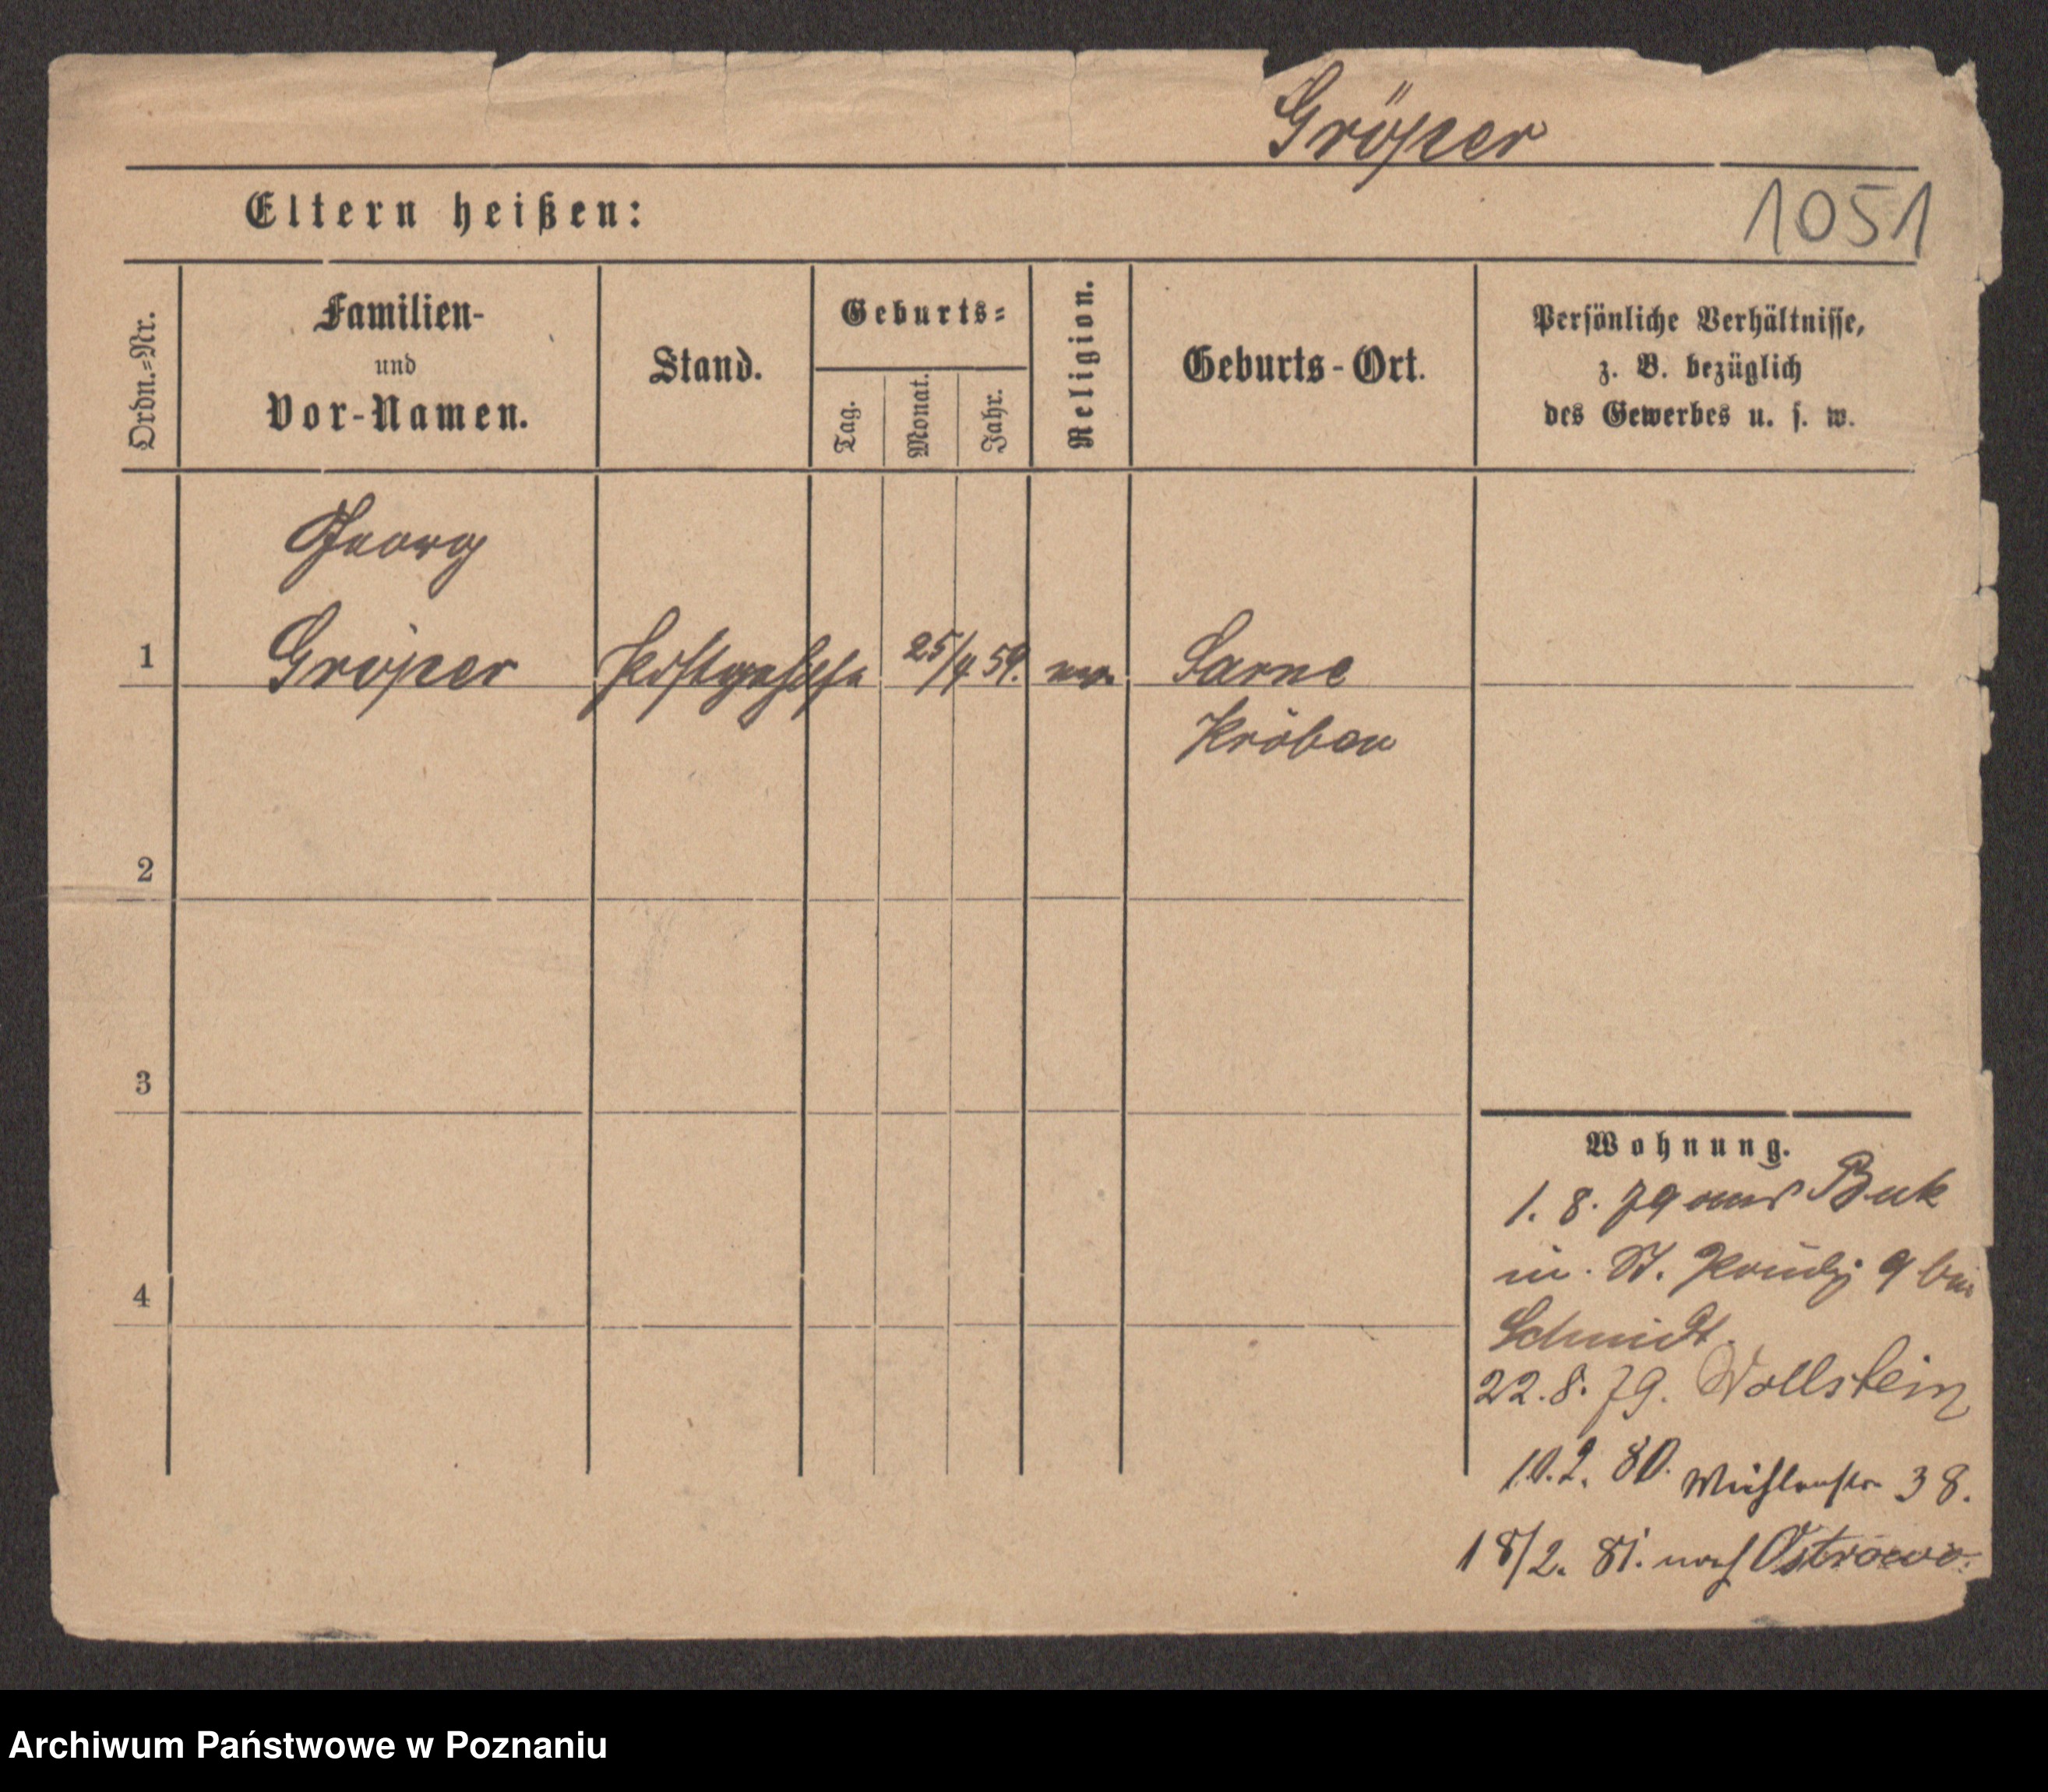 Gröper
1051
Eltern heißen:
Ordn.=Nr.
Familien-
und
Vor-Namen.
Stand.
Geburts=
Tag.
Monat.
Jahr.
Religion.
Geburts-Ort.
Persönliche Verhältnisse,
z. B. bezüglich
des Gewerbes u. s. w.
Georg
1 Gröper Postgehilfe 25/4 59. Sarne
Kröben
2
3
4
Wohnung.
1. 8. 79 aus Buk
St. 9 bei
Schmidt.
22. 8. 79. Wollstein
10. 2. 80. Mühlenstr 38.
18/2. 81. nach Ostrowo.
Archiwum Państwowe w Poznaniu